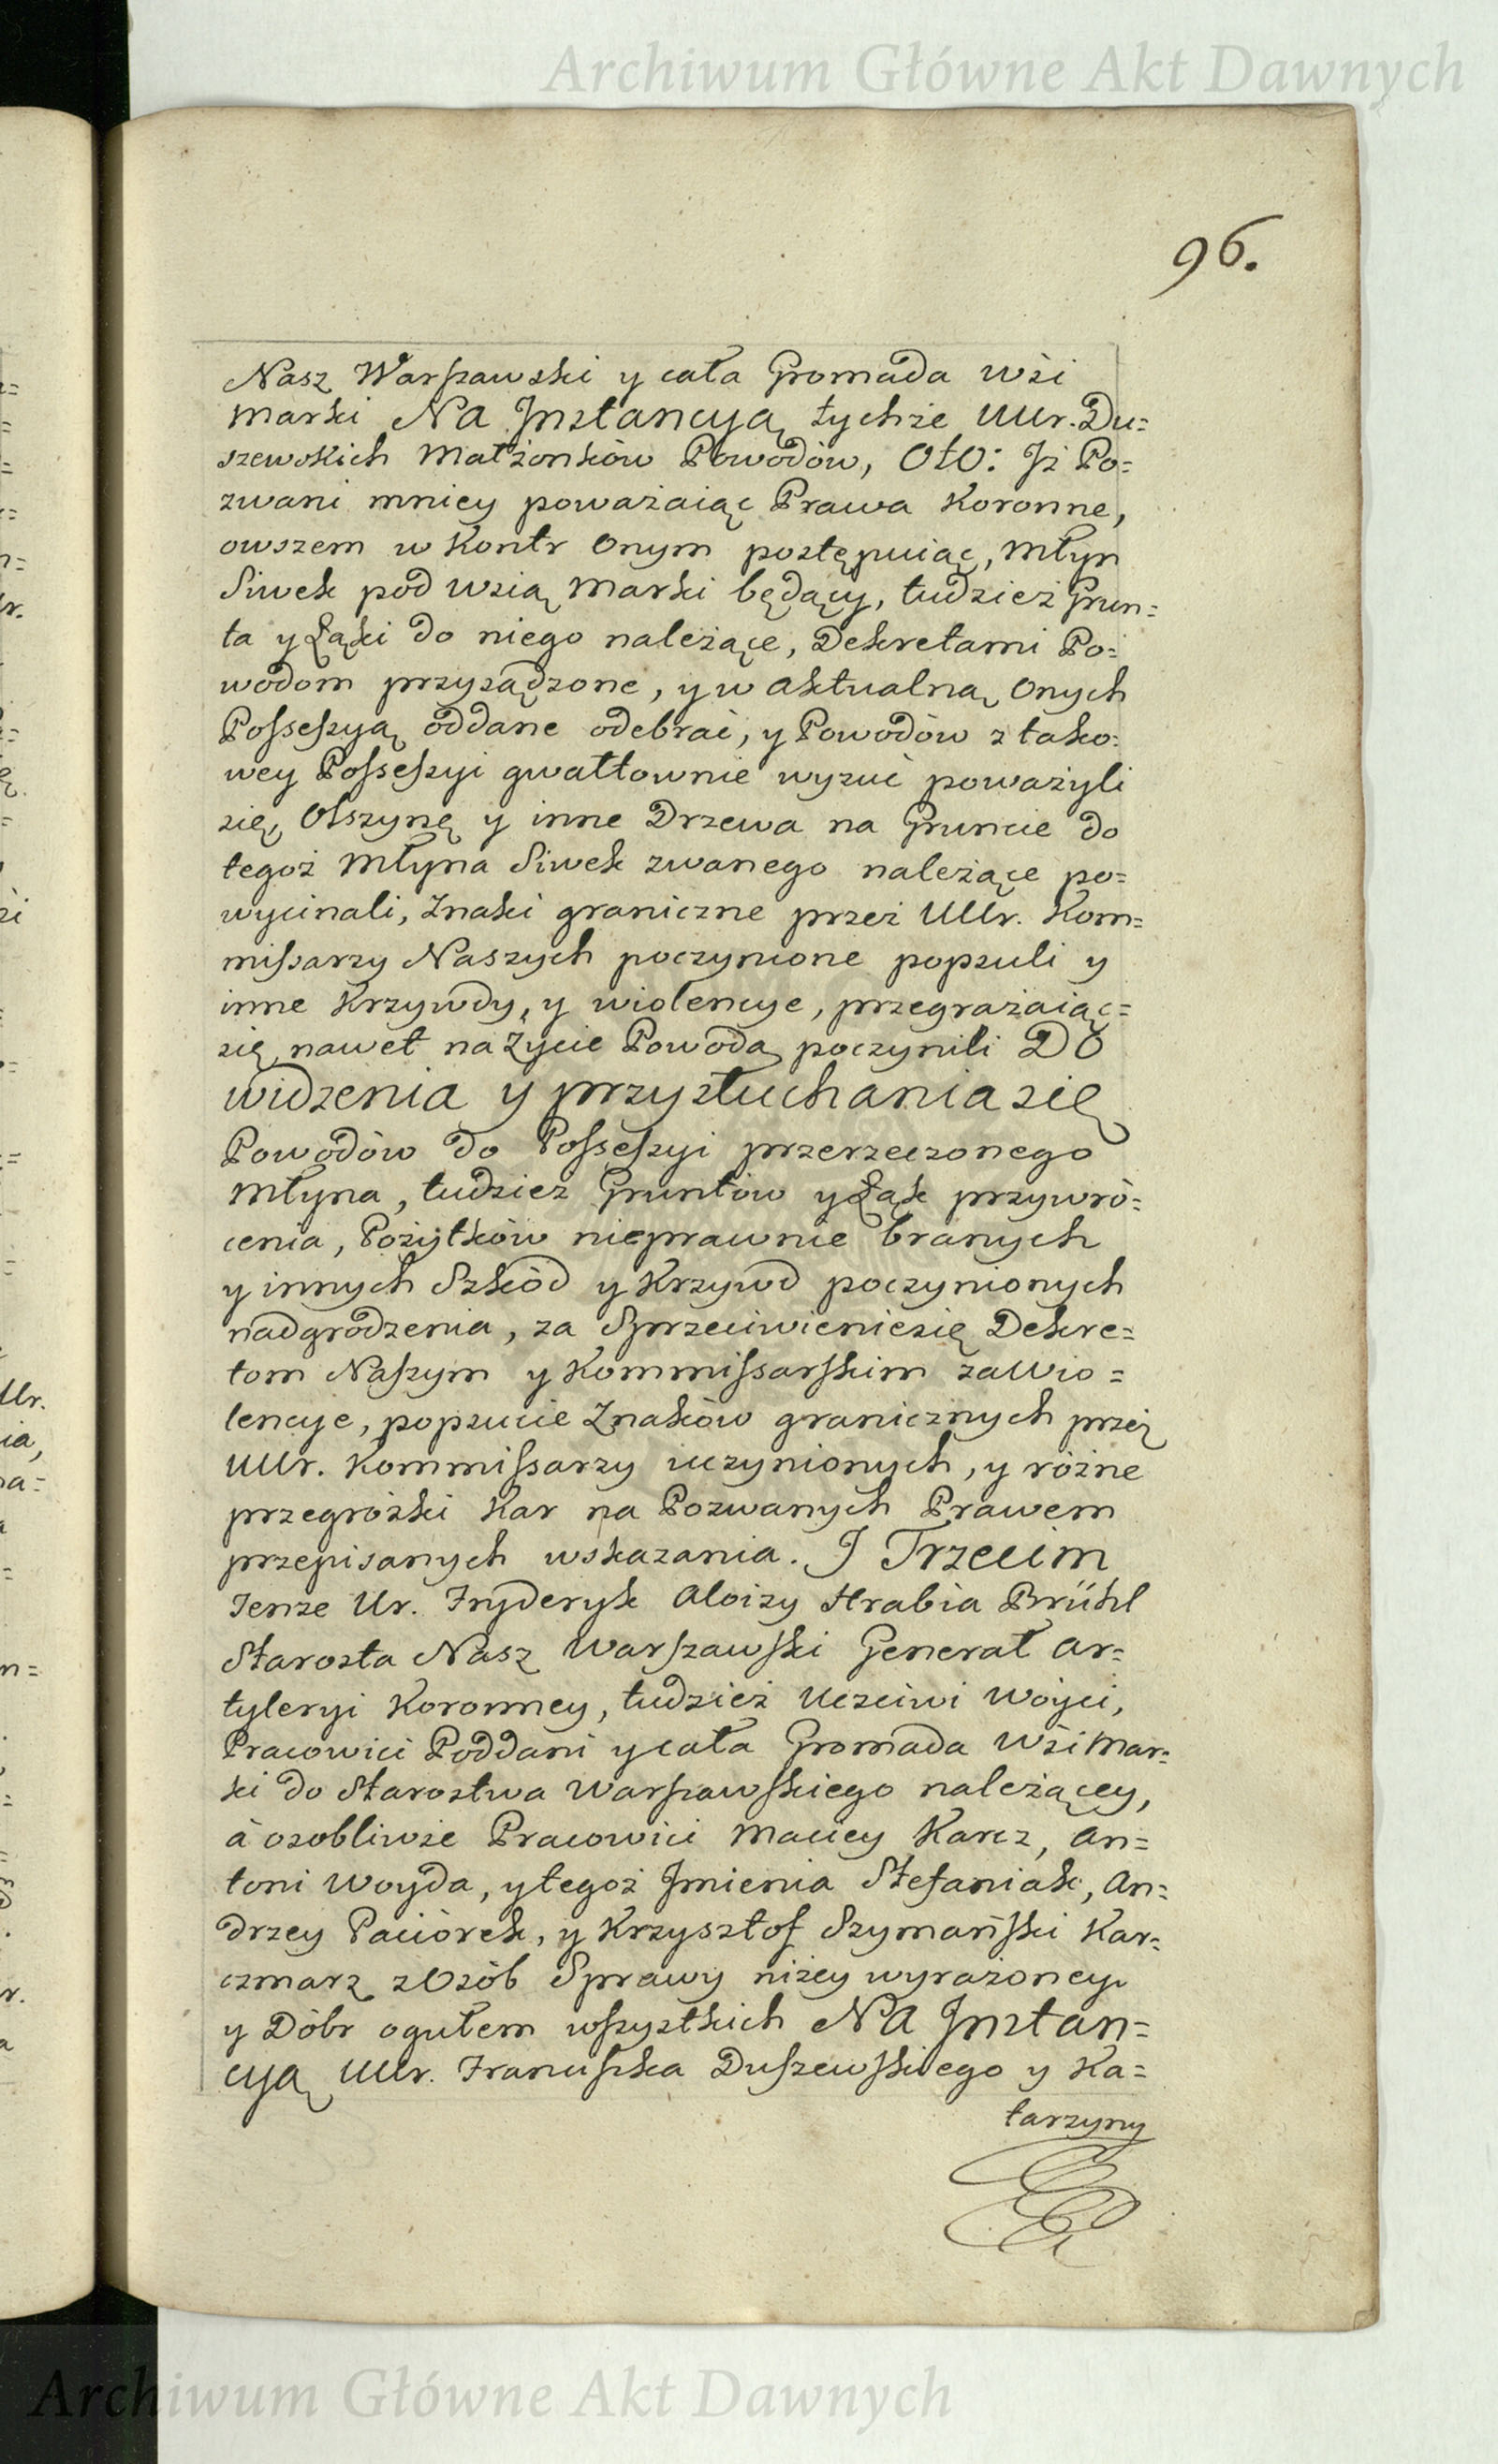 Archiwum Główne Akt Dawnych
96.
Nasz Warszawski y cała Gromada wśi
Marki NA Jnstancyą tychże UUr. Du=
szewskich Małżonków Powodów, OtO: Jż Po=
zwani mniey poważaiąc Prawa Koronne,
owszem w Kontr Onym postępuiąc, Młyn
Siwek pod wsią Marki będący, tudzież Grun=
ta y Łąki do niego należące, Dekretami Po=
wodom przysądzone, y w aktualną Onych
Possessyą oddane odebrać, y Powodów z tako=
wey Possessyi gwałtownie wyzuć poważyli
się, Olszynę y inne Drzewa na Gruncie do
tegoż Młyna Siwek zwanego należące po=
wycinali, Znaki graniczne przez UUr. Kom=
missarzy Naszych poczynione popsuli y
inne Krzywdy, y wiolencye, przegrażaiąc=
się nawet na Życie Powoda poczynili DO
widzenia y przysłuchania się
Powodów do Possessyi przerzeczonego
Młyna, tudzież Gruntów y Łąk przywró=
cenia, Pożytków nieprawnie branych
y innych Szkód y Krzywd poczynionych
nadgrodzenia, za Sprzeciwieniesię Dekre=
tom Naszym y Kommissarskim za Wio=
lencye, popsucie Znaków granicznych przez
UUr. Kommissarzy uczynionych, y różne
przegróżki Kar na Pozwanych Prawem
przepisanych wskazania. J Trzecim
Tenze Ur. Fryderyk Aloizy Hrabia Brühl
Starosta Nasz Warszawski Generał Ar=
tyleryi Koronney, tudzież Uczciwi Woyci,
Pracowici Poddani y cała Gromada Wśi Mar=
ki do Starostwa Warszawskiego należącey,
à osobliwie Pracowici Maciey Karcz, An=
toni Woyda, y tegoż Jmienia Stefaniak, An=
drzey Paciórek, y Krzysztof Szymański Kar=
czmarz z Osób Sprawy niżey wyrażoney
y Dóbr ogułem wszystkich NA Jnstan=
cyą UUr. Franciszka Duszewskiego y Ka=
tarzyny
Archiwum Główne Akt Dawnych